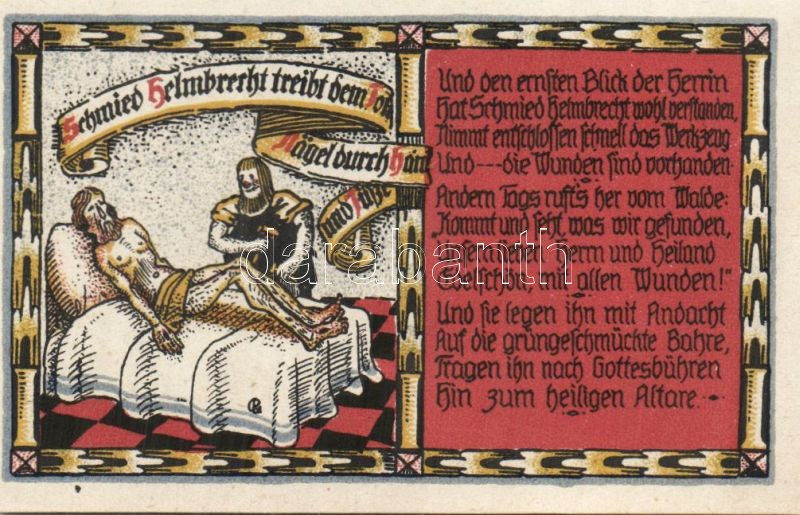 Schmied Helmbrecht treibt dem Tod
Nägel durch Hän
und Füße
Und den ernsten Blick der Herrin
Hat Schmied Helmbrecht wohl verstanden,
Nimmt entschlossen schnell das Werkzeug
Und---die Wunden sind vorhanden.
Andern Tags ruft's her vom Walde:
„Kommt und seht, was wir gefunden,
lieben Herrn und Heiland
mit allen Wunden!"
Und sie legen ihn mit Andacht
Auf die grüngeschmückte Bahre,
Tragen ihn nach Gottesbühren
Hin zum heiligen Altare.
darabanth